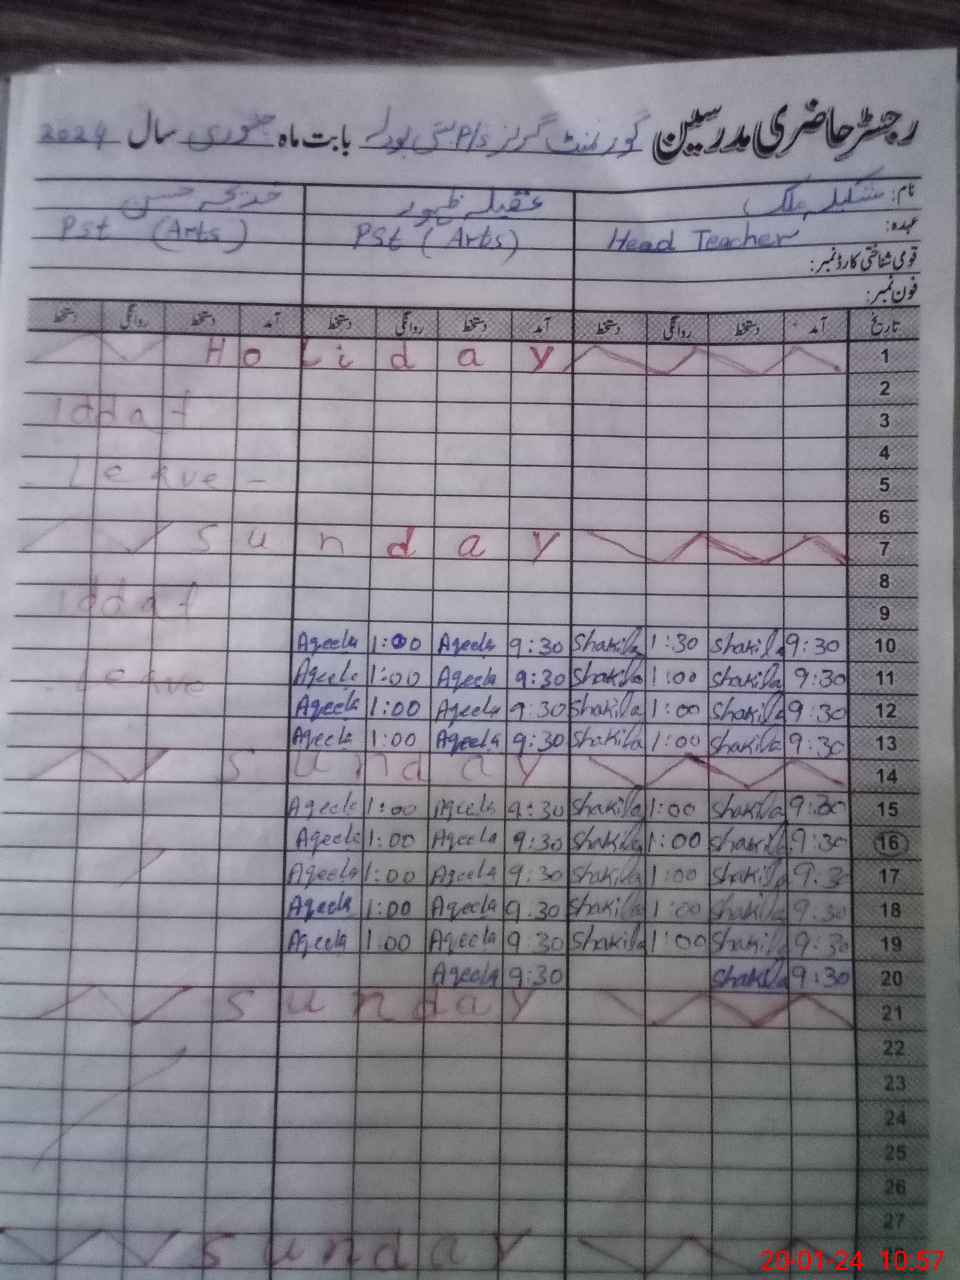 رجسٹر حاضری مدرسین گورنمنٹ گرلز P/S بستی بودلہ بابت ماہ جنوری سال 2024
نام: شکیلہ ملک عقیلہ ظہور خدیجہ حسن
عہدہ: Head Teacher PSt (Arts) Pst (Arts)
قومی شناختی کارڈ نمبر:
فون نمبر:
تاریخ آمد دستخط روانگی دستخط آمد دستخط روانگی دستخط آمد دستخط روانگی دستخط
Holiday 1
2
Iddat 3
4
Leave - 5
6
Sunday 7
8
Iddat 9
Aqeela 1:00 Aqeela 9:30 Shakila 1:30 Shakila 9:30 10
Leave Aqeela 1:00 Aqeela 9:30 Shakila 1:00 Shakila 9:30 11
Aqeela 1:00 Aqeela 9:30 Shakila 1:00 Shakila 9:30 12
Aqeela 1:00 Aqeela 9:30 Shakila 1:00 Shakila 9:30 13
Sunday 14
Aqeela 1:00 Aqeela 9:30 Shakila 1:00 Shakila 9:30 15
Aqeela 1:00 Aqeela 9:30 Shakila 1:00 Shakila 9:30 16
Aqeela 1:00 Aqeela 9:30 Shakila 1:00 Shakila 9:30 17
Aqeela 1:00 Aqeela 9.30 Shakila 1:00 Shakila 9:30 18
Aqeela 1.00 Aqeela 9:30 Shakila 1:00 Shakila 9:30 19
Aqeela 9:30 Shakila 9:30 20
Sunday 21
22
23
24
25
26
27
Sunday
20-01-24 10:57